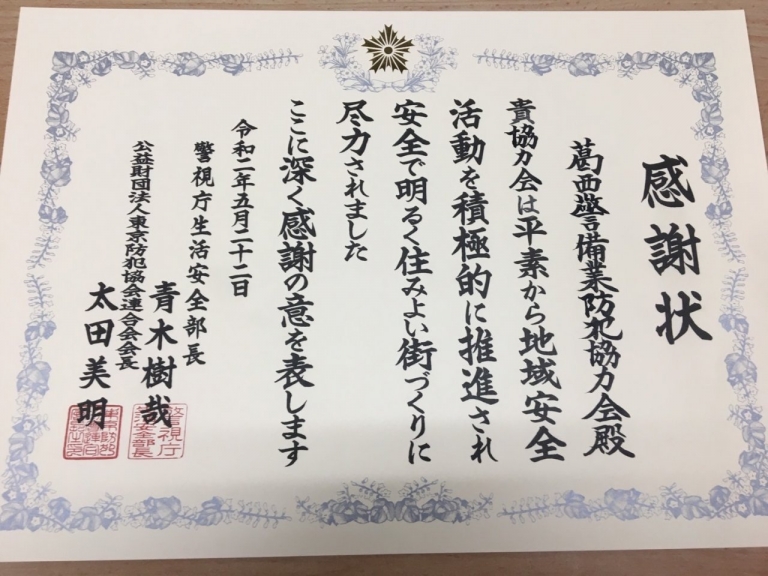 感謝状
葛西警備業防犯協力会殿
貴協力会は平素から地域安全
活動を積極的に推進され
安全で明るく住みよい街づくりに
尽力されました
ここに深く感謝の意を表します
令和二年五月二十二日
警視庁生活安全部長
青木樹哉
公益財団法人東京防犯協会連合会会長
太田美明
警視庁
生活安全部長